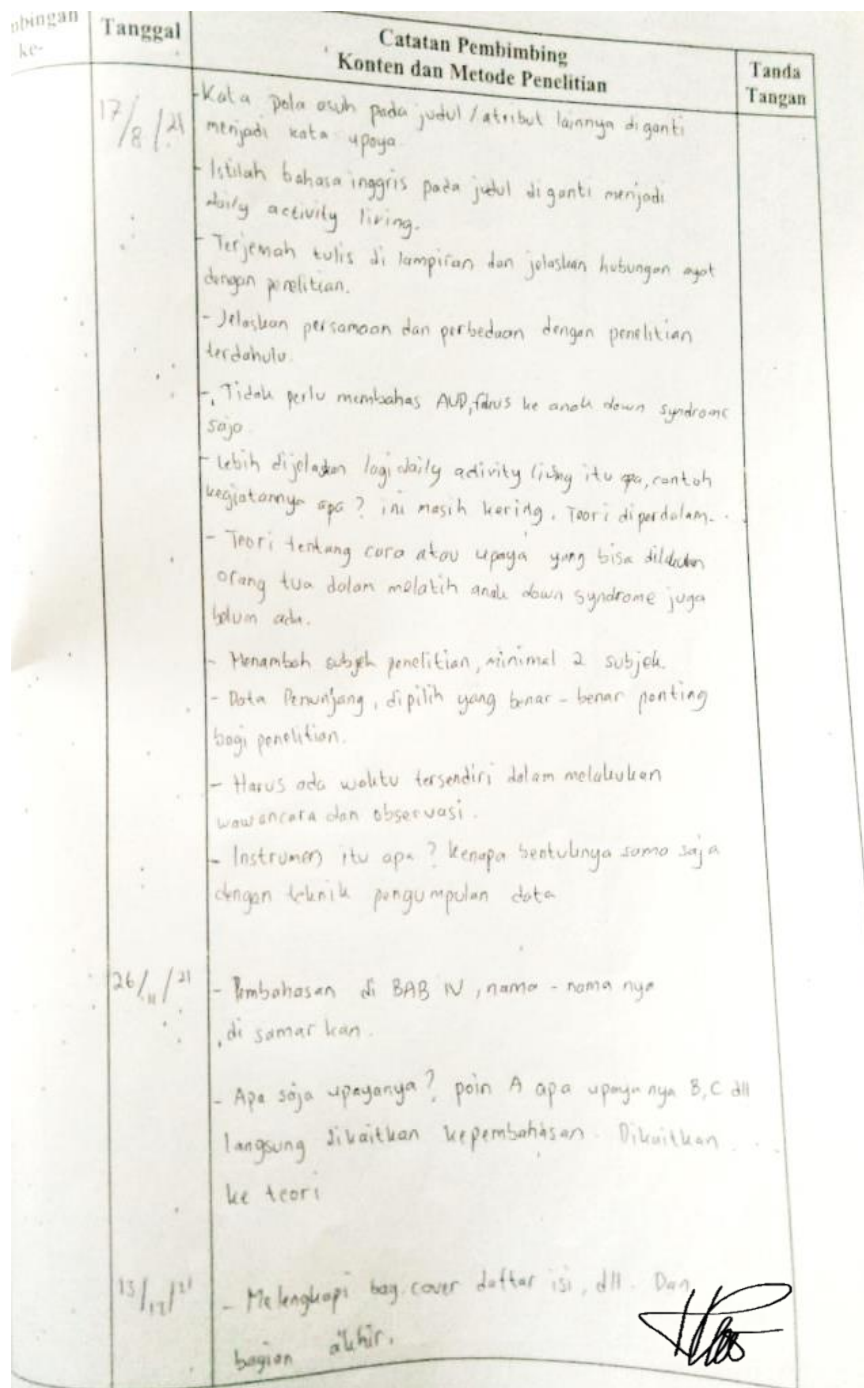 mbingan
ke-
Tanggal
Catatan Pembimbing
Konten dan Metode Penelitian
Tanda
Tangan
17/8/21
- Kata pola asuh pada judul/atribut lainnya diganti
menjadi kata upaya.
- Istilah bahasa inggris pada judul diganti menjadi
daily activity living.
- Terjemah tulis di lampiran dan jelaskan hubungan ayat
dengan penelitian.
- Jelaskan persamaan dan perbedaan dengan penelitian
terdahulu.
- Tidak perlu membahas AUD, fokus ke anak down syndrome
saja.
- Lebih dijelaskan lagi daily activity living itu apa, contoh
kegiatannya apa? ini masih kering. Teori diperdalam.
- Teori tentang cara atau upaya yang bisa dilakukan
orang tua dalam melatih anak down syndrome juga
belum ada.
- Menambah subjek penelitian, minimal 2 subjek.
- Data Penunjang, dipilih yang benar-benar penting
bagi penelitian.
- Harus ada waktu tersendiri dalam melakukan
wawancara dan observasi.
- Instrumen itu apa? Kenapa bentuknya sama saja
dengan teknik pengumpulan data
26/11/21
- Pembahasan di BAB IV, nama-nama nya
di samarkan.
- Apa saja upayanya? poin A apa upaya nya B, C dll
langsung dikaitkan kepembahasan. Dikaitkan
ke teori
13/12/21
- Melengkapi bag. cover daftar isi, dll. Dan
bagian akhir.